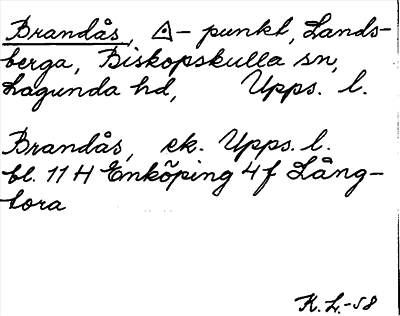 Brandås, △- punkt, Lands-
berga, Biskopskulla sn,
Lagunda hd, Upps. l.
Brandås, ek. Upps. l.
bl. 11 H Enköping 4 f Lång-
tora
K.L.-58